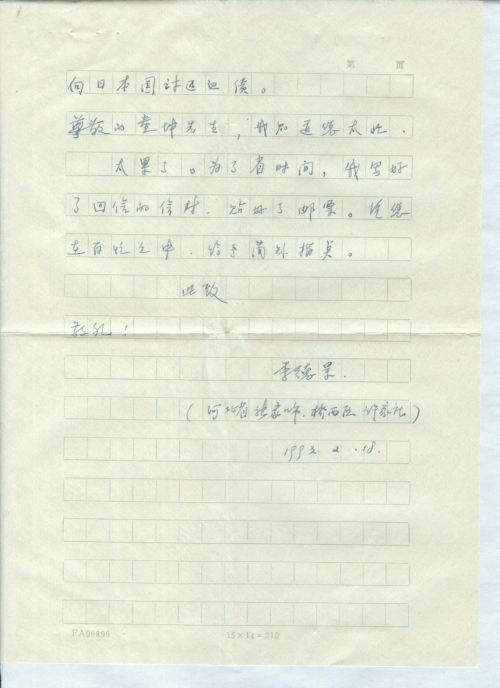 第 页
向日本国讨还血债。
尊敬的童增先生,我知道您太忙.
太累了。为了省时间,我写好
了回信的信封.贴好了邮票。望您
在百忙之中.给予简升指点。
此致
敬礼!
李德
(河北省张家口市.桥西区
199 2 . 18.
FA96806 15×14=210